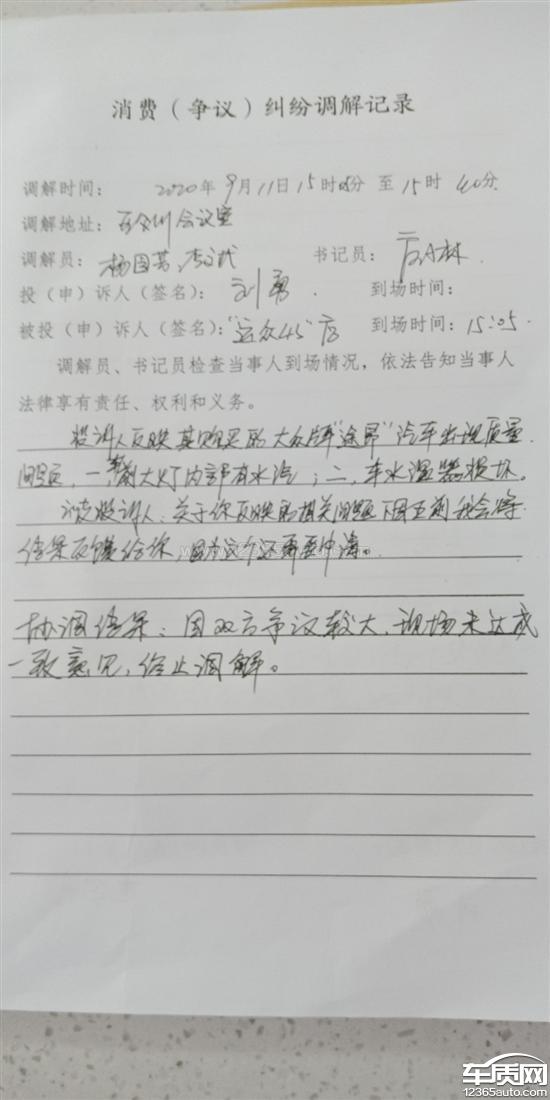 消费（争议）纠纷调解记录
调解时间： 2020年9月11日15时05分 至 15时 40分
调解地址： 会议室
调解员： 杨国 书记员：
投（申）诉人（签名）： 刘勇 到场时间：
被投（申）诉人（签名）：“运众4S”店 到场时间：15:05
调解员、书记员检查当事人到场情况，依法告知当事人
法律享有责任、权利和义务。
投诉人反映其购买的大众牌“途昂”汽车出现质量
问题，一、前大灯内部有水汽；二、车水温器损坏。
被投诉人：关于你反映的相关问题下周五前我会将
结果反馈给你，因为这个还需要申请。
协调结果：因双方争议较大，现场未达成
一致意见，终止调解。
车质网
12365auto.com